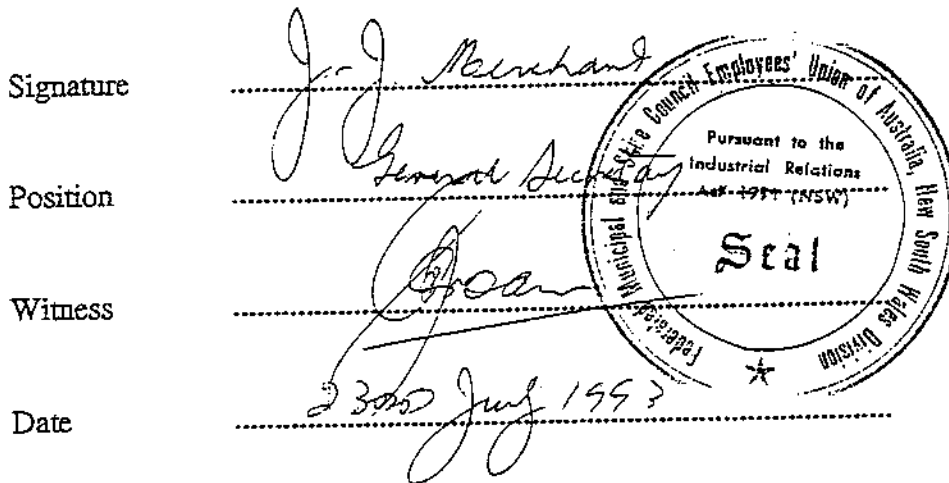 Signature J. J. Merchant
Position General Secretary
Witness
Date 23rd July 1993
Federated Municipal and Shire Council Employees' Union of Australia, New South Wales Division
Pursuant to the
Industrial Relations
Act 1991 (NSW)
Seal